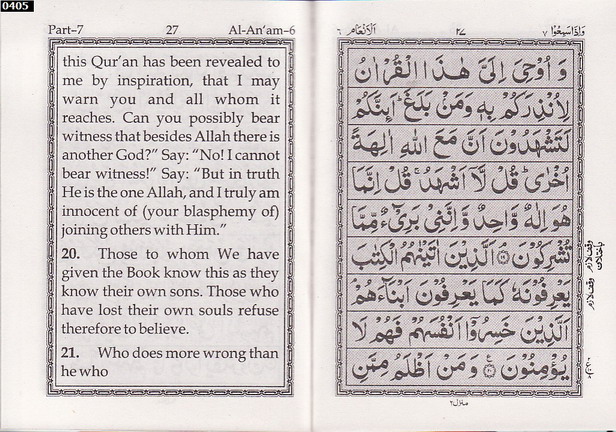 0405
Part–7 27 Al-An'am–6
this Qur'an has been revealed to
me by inspiration, that I may
warn you and all whom it
reaches. Can you possibly bear
witness that besides Allah there is
another God?” Say: “No! I cannot
bear witness!” Say: “But in truth
He is the one Allah, and I truly am
innocent of (your blasphemy of)
joining others with Him.”
20. Those to whom We have
given the Book know this as they
know their own sons. Those who
have lost their own souls refuse
therefore to believe.
21. Who does more wrong than
he who
وَاِذَاسَمِعُوْا ٧ ٢٧ اَلْاَنْعَام ٦
وَ اُوْحِیَ اِلَیَّ هٰذَا الْقُرْاٰنُ
لِاُنْذِرَكُمْ بِهٖ وَمَنْۢ بَلَغَ ؕ اَئِنَّكُمْ
لَتَشْهَدُوْنَ اَنَّ مَعَ اللّٰهِ اٰلِهَةً
اُخْرٰی ؕ قُلْ لَّاۤ اَشْهَدُ ۚ قُلْ اِنَّمَا
هُوَ اِلٰهٌ وَّاحِدٌ وَّاِنَّنِیْ بَرِیْٓءٌ مِّمَّا
تُشْرِكُوْنَ ﴿۱۹﴾ اَلَّذِیْنَ اٰتَیْنٰهُمُ الْكِتٰبَ
یَعْرِفُوْنَهٗ كَمَا یَعْرِفُوْنَ اَبْنَآءَهُمْ ۘ
اَلَّذِیْنَ خَسِرُوْۤا اَنْفُسَهُمْ فَهُمْ لَا
یُؤْمِنُوْنَ ﴿۲۰﴾ وَمَنْ اَظْلَمُ مِمَّنِ
وقف لازم
وقف لازم
منزل ٢